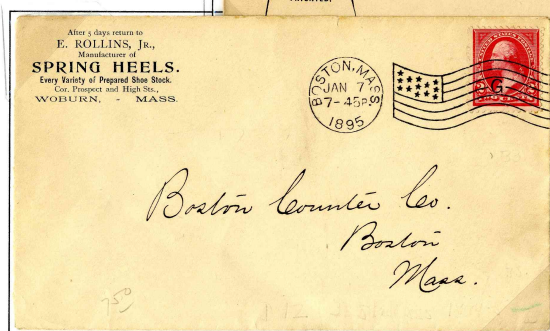 After 5 days return to
E. ROLLINS, JR.,
Manufacturer of
SPRING HEELS.
Every Variety of Prepared Shoe Stock.
Cor. Prospect and High Sts.,
WOBURN, - MASS.
BOSTON, MASS.
JAN 7
7-45P
1895
G
Boston Counter Co.
Boston
Mass.
750